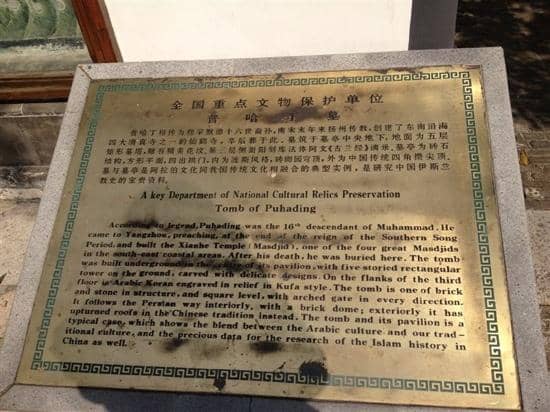 全国重点文物保护单位
普哈丁墓
普哈丁相传为穆罕默德十六世裔孙，南宋末年来扬州传教，创建了东南沿海
四大清真寺之一的仙鹤寺，卒后葬于此。墓筑于墓亭中央地下，地面为五层
矩形墓塔，雕有精美花纹，第三层侧面阳刻库法体阿文《古兰经》，墓亭为砖石
结构，方形平面，四出拱门，内为波斯风格，砖砌圆穹顶，外为中国传统四角攒尖顶。
墓与墓亭是阿拉伯文化同我国传统文化相融合的典型实例，是研究中国伊斯兰
教史的宝贵资料。
A key Department of National Cultural Relics Preservation
Tomb of Puhading
According to legend, Puhading was the 16th descendant of Muhammad. He
came to Yangzhou, preaching, at the end of the reign of the Southern Song
Period, and built the Xianhe Temple (Masdjid), one of the four great Masdjids
in the south-east coastal areas. After his death, he was buried here. The tomb
was built underground in the centre of its pavilion, with five storied rectangular
tower on the ground, carved with delicate designs. On the flanks of the third
floor is Arabic Koran engraved in relief in Kufa style. The tomb is one of brick
and stone in structure, and square level, with arched gate in every direction.
It follows the Persian way interiorly, with a brick dome; exteriorly it has
upturned roofs in the Chinese tradition instead. The tomb and its pavilion is a
typical case, which shows the blend between the Arabic culture and our trad-
itional culture, and the precious data for the research of the Islam history in
China as well.